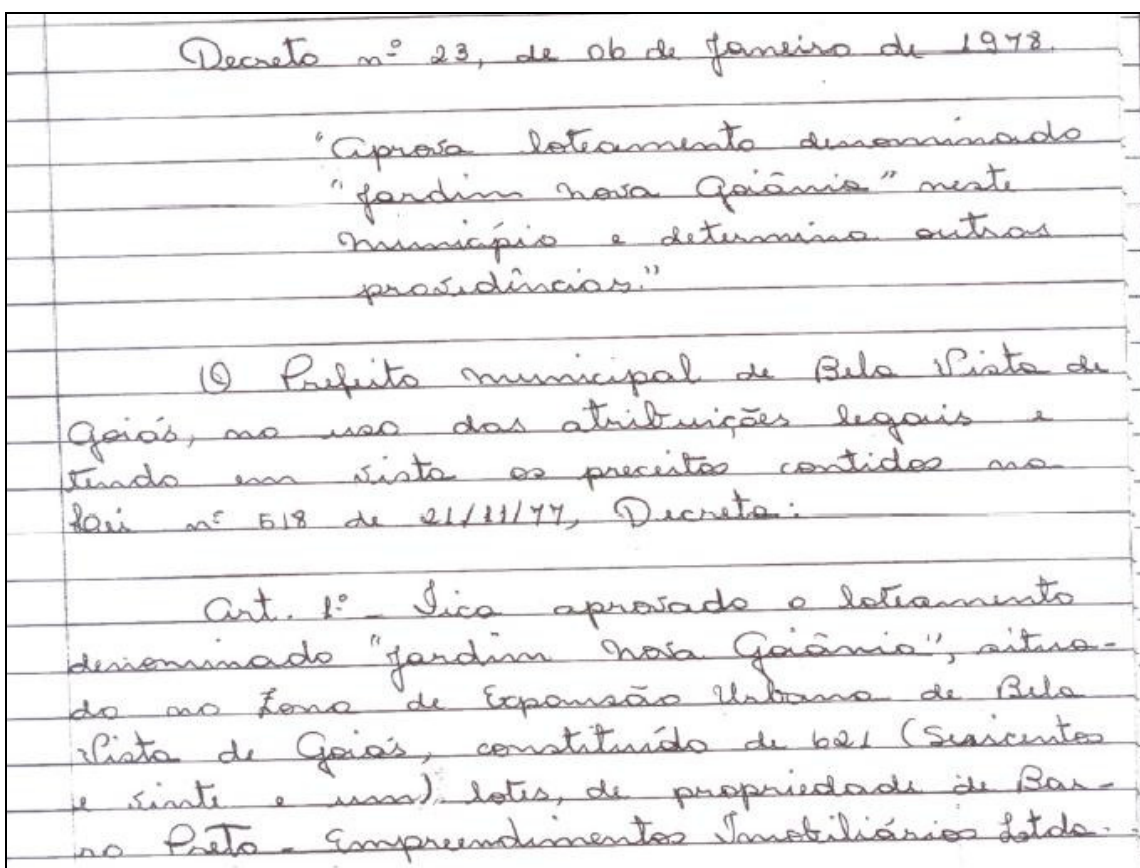 Decreto nº 23, de 06 de Janeiro de 1978.
"Aprova loteamento denominado
"Jardim Nova Goiânia" neste
Município e determina outras
providências."
O Prefeito Municipal de Bela Vista de
Goiás, no uso das atribuições legais e
tendo em vista os preceitos contidos na
Lei nº 518 de 21/11/77, Decreta:
Art. 1º - Fica aprovado o loteamento
denominado "Jardim Nova Goiânia", situa-
do na Zona de Expansão Urbana de Bela
Vista de Goiás, constituído de 621 (Seiscentos
e vinte e um) lotes, de propriedade de Bar-
ro Preto - Empreendimentos Imobiliários Ltda.